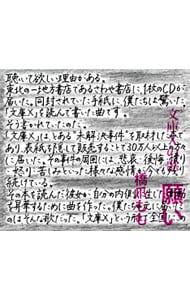 聴いて欲しい理由がある。
東北の一地方書店であるさわや書店に、1枚のCDが
届いた。同封されていた手紙に、僕たちは驚いた。
「文庫X」を読んで書いた曲です。
そう書かれていたのだ。
「文庫X」はとある"未解決事件"を取材した本で
あり、表紙を隠して販売することで30万人以上の方々
に届いた。その事件の周囲には、悲哀、後悔、憤り
怒り、苦しみといった様々な感情が今でも
続けている。
その本を読んだ彼女が、自分の内側に
を昇華するために曲を作った。僕たちの元に届いた
のはそんな歌だった。「文庫X」という
文庫
願い
橋
む